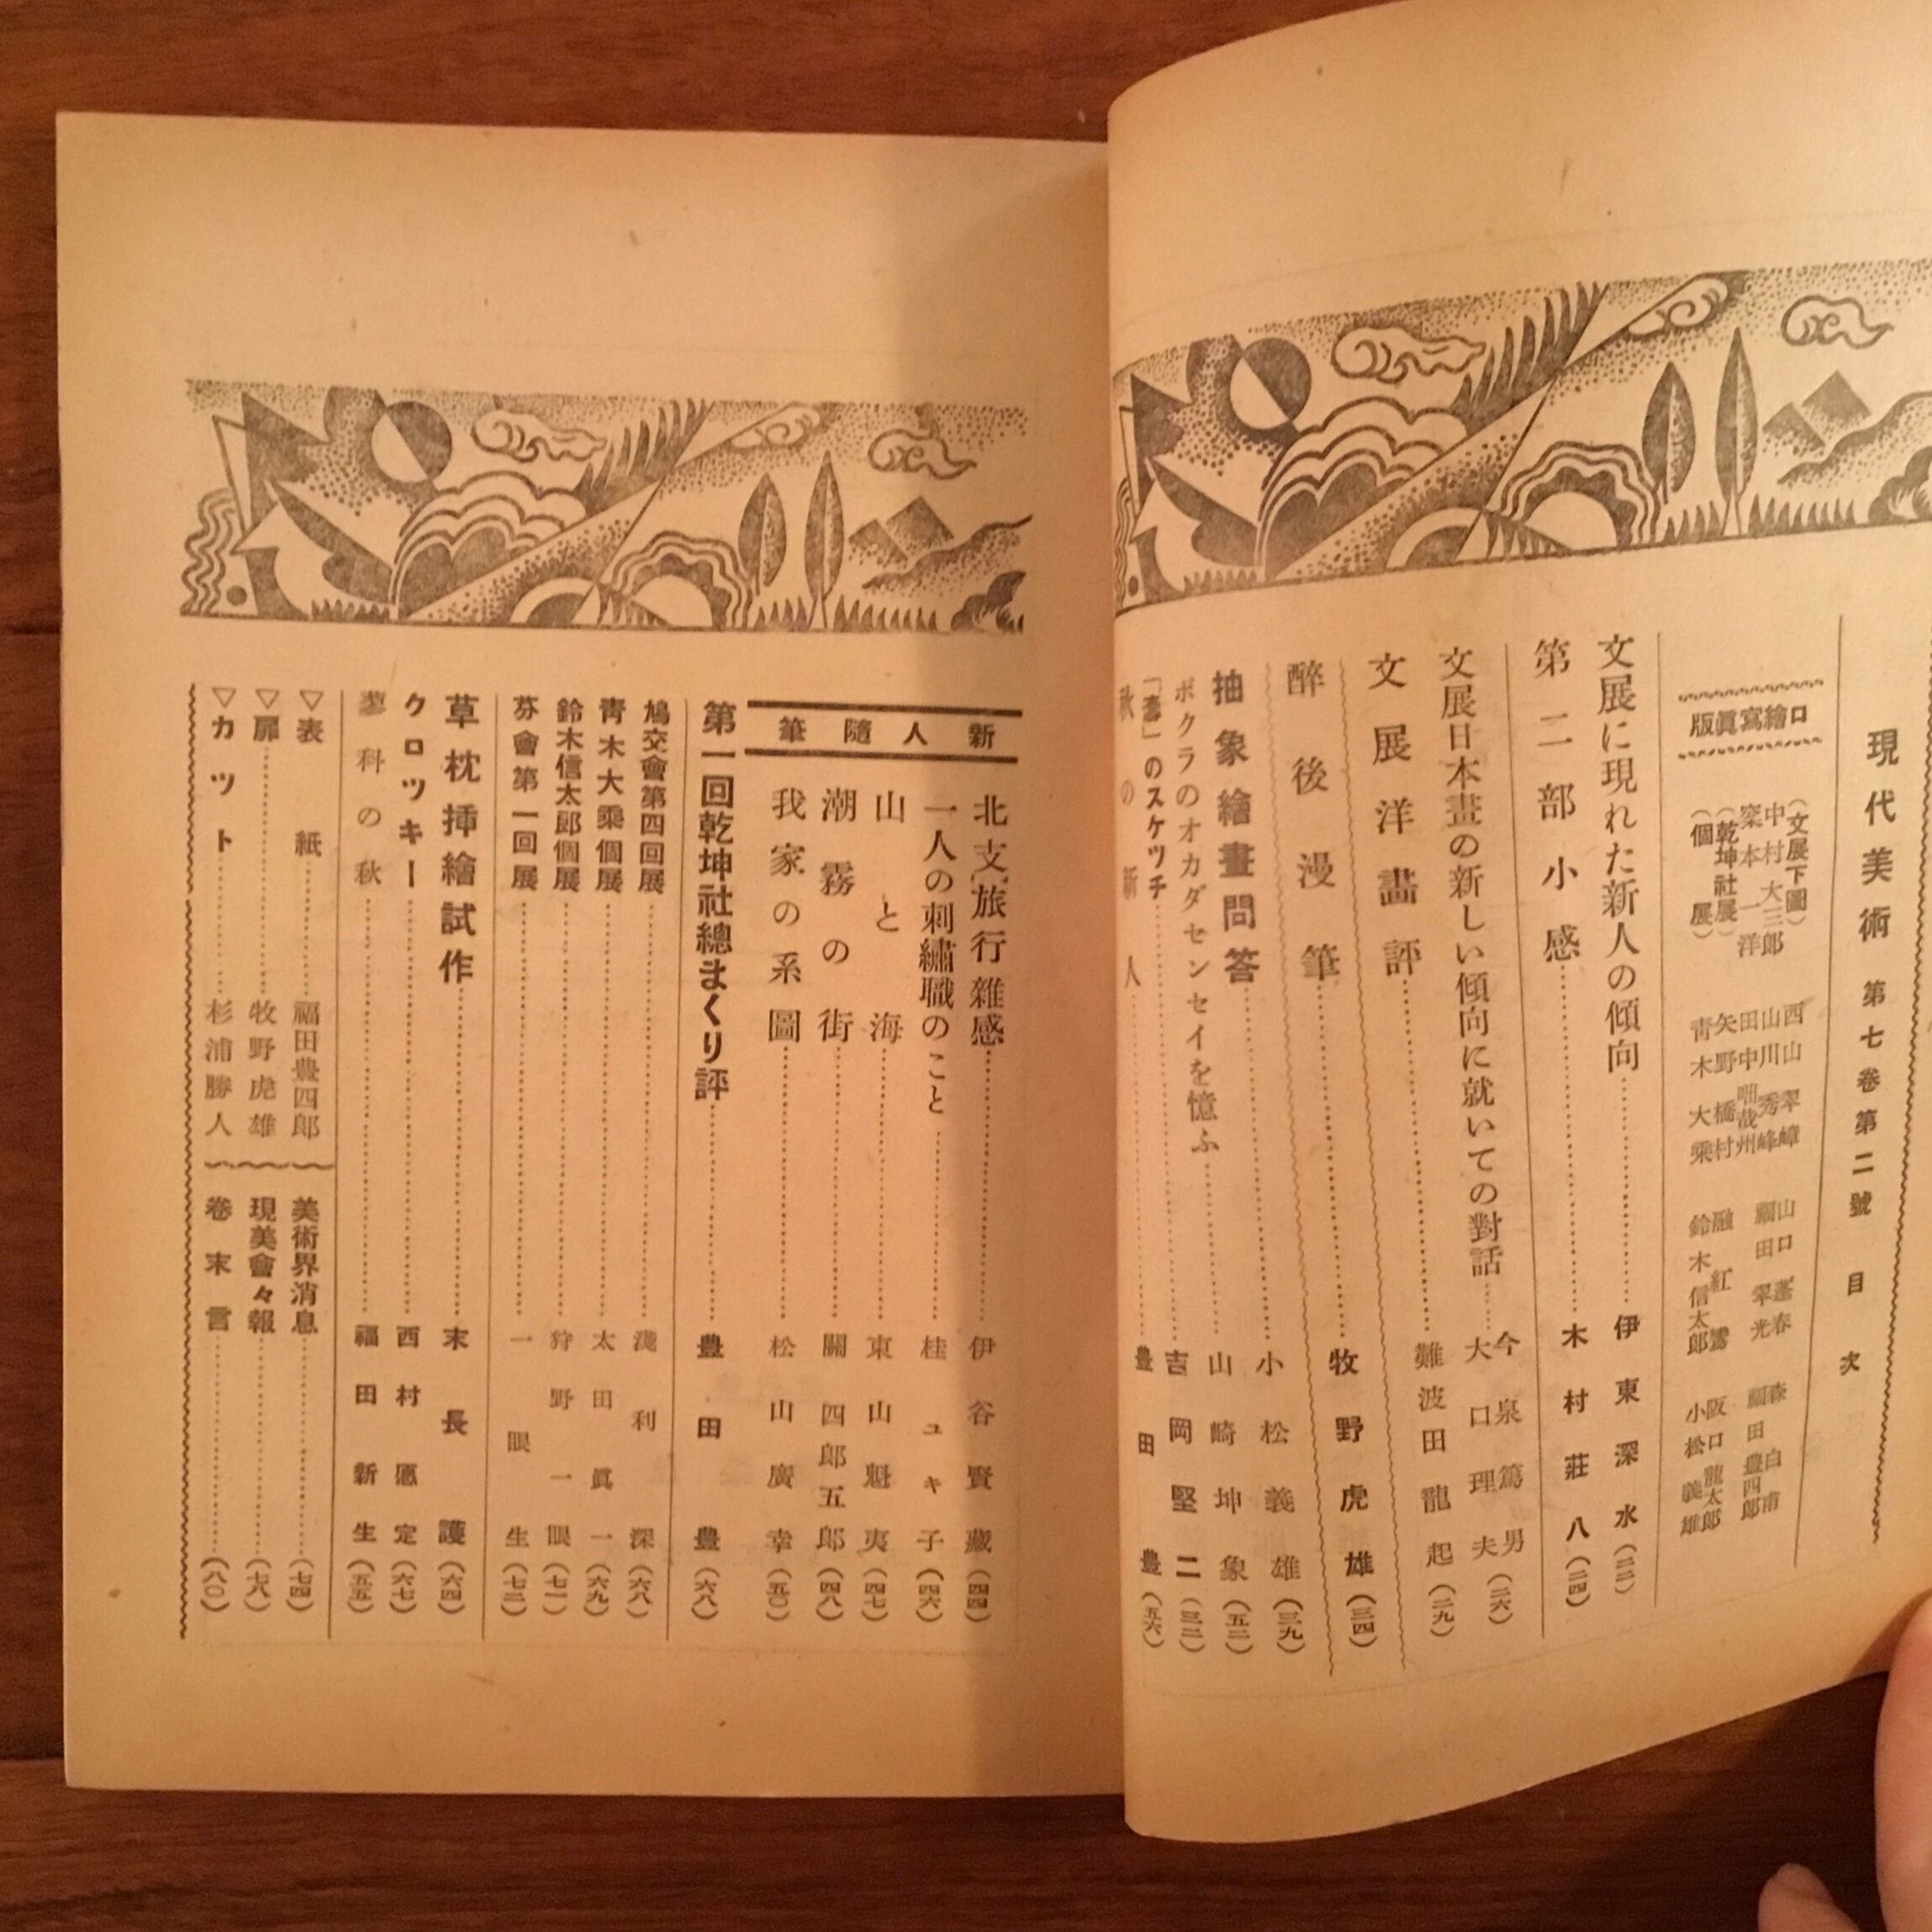 現代美術 第七卷第二號 目次
口繪寫眞版
(文展下圖)
西山翠嶂
山口蓬春
森白甫
中村大三郎
山川秀峰
福田翠光
福田豊四郎
本一洋
田中咄哉州
(乾坤社展)
矢野橋村
融紅鸞
阪口龍太郎
(個展)
靑木大乘
鈴木信太郎
小松義雄
文展に現れた新人の傾向……伊東深水(二二)
第二部小感……木村莊八(二四)
文展日本畫の新しい傾向に就いての對話……今泉篤男 大口理夫(二六)
文展洋畫評……難波田龍起(二九)
醉後漫筆……牧野虎雄(三四)
抽象繪畫問答……小松義雄(三九)
ボクラのオカダセンセイを憶ふ……山崎坤象(五二)
「濤」のスケツチ……吉岡堅二(三二)
秋の新人……豊田豊(五六)
新人隨筆
北支旅行雜感……伊谷賢藏(四四)
一人の刺繡職のこと……桂ユキ子(四六)
山と海……東山魁夷(四七)
潮霧の街……關四郎五郎(四八)
我家の系圖……松山廣幸(五〇)
第一回乾坤社總まくり評……豊田豊(六八)
鳩交會第四回展……淺利深(六八)
靑木大乘個展……太田眞一(六九)
鈴木信太郎個展……狩野一眼(七一)
芬會第一回展……一眼生(七二)
草枕挿繪試作……末長護(六四)
クロツキー……西村愿定(六七)
蓼科の秋……福田新生(五五)
▽表紙……福田豊四郎
美術界消息……(七四)
▽扉……牧野虎雄
現美會々報……(七八)
▽カツト……杉浦勝人
卷末言……(八〇)